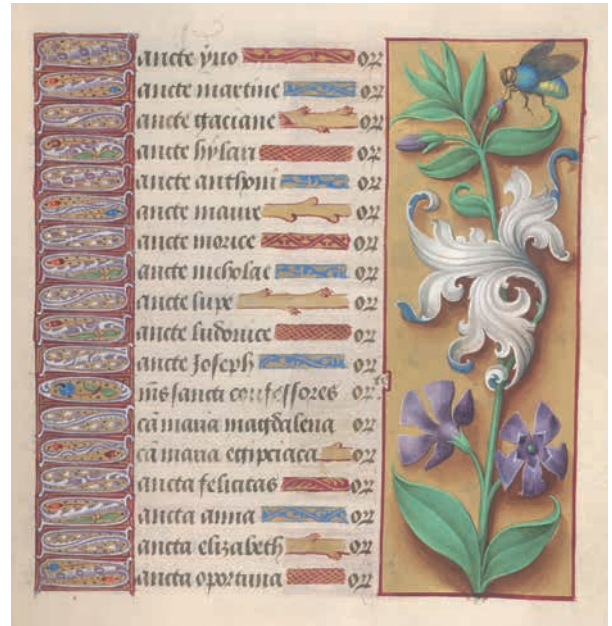 Sancte yuo or
Sancte martine or
Sancte gaciane or
Sancte hylari or
Sancte anthoni or
Sancte maure or
Sancte morice or
Sancte nicholae or
Sancte lupe or
Sancte ludouice or
Sancte Joseph or
Om̄s sancti confessores or te
Scā maria magdalena or
Scā maria egipciaca or
Sancta felicitas or
Sancta anna or
Sancta elizabeth or
Sancta oportuna or